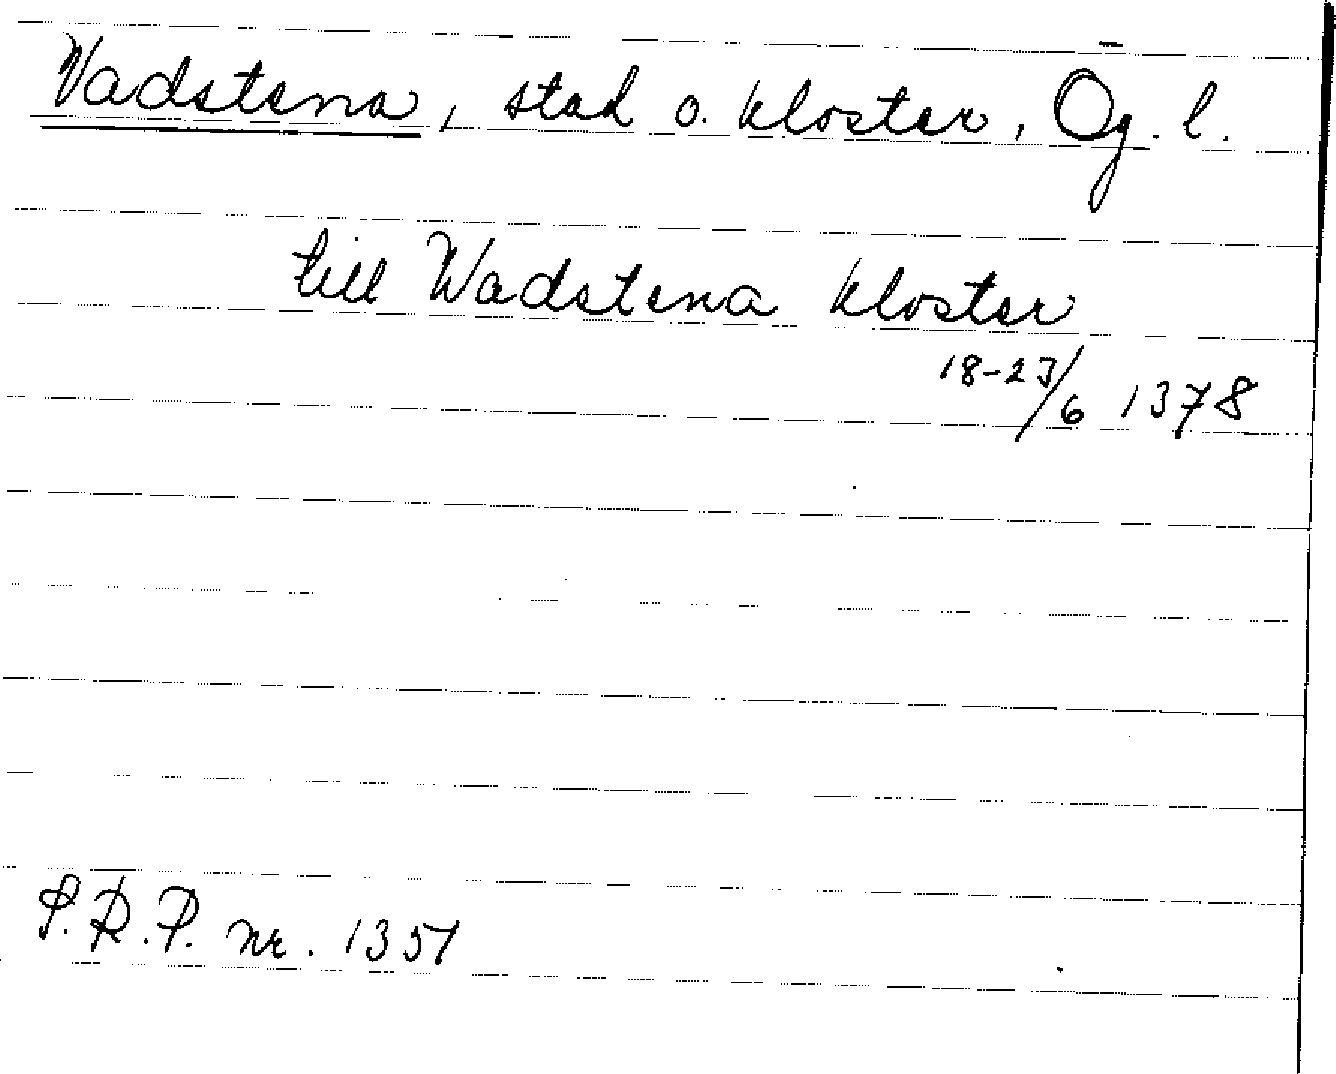 Vadstena, stad o. kloster, Ög. l.
till Wadstena kloster
18-23/6 1378
S.R.P. nr. 1351